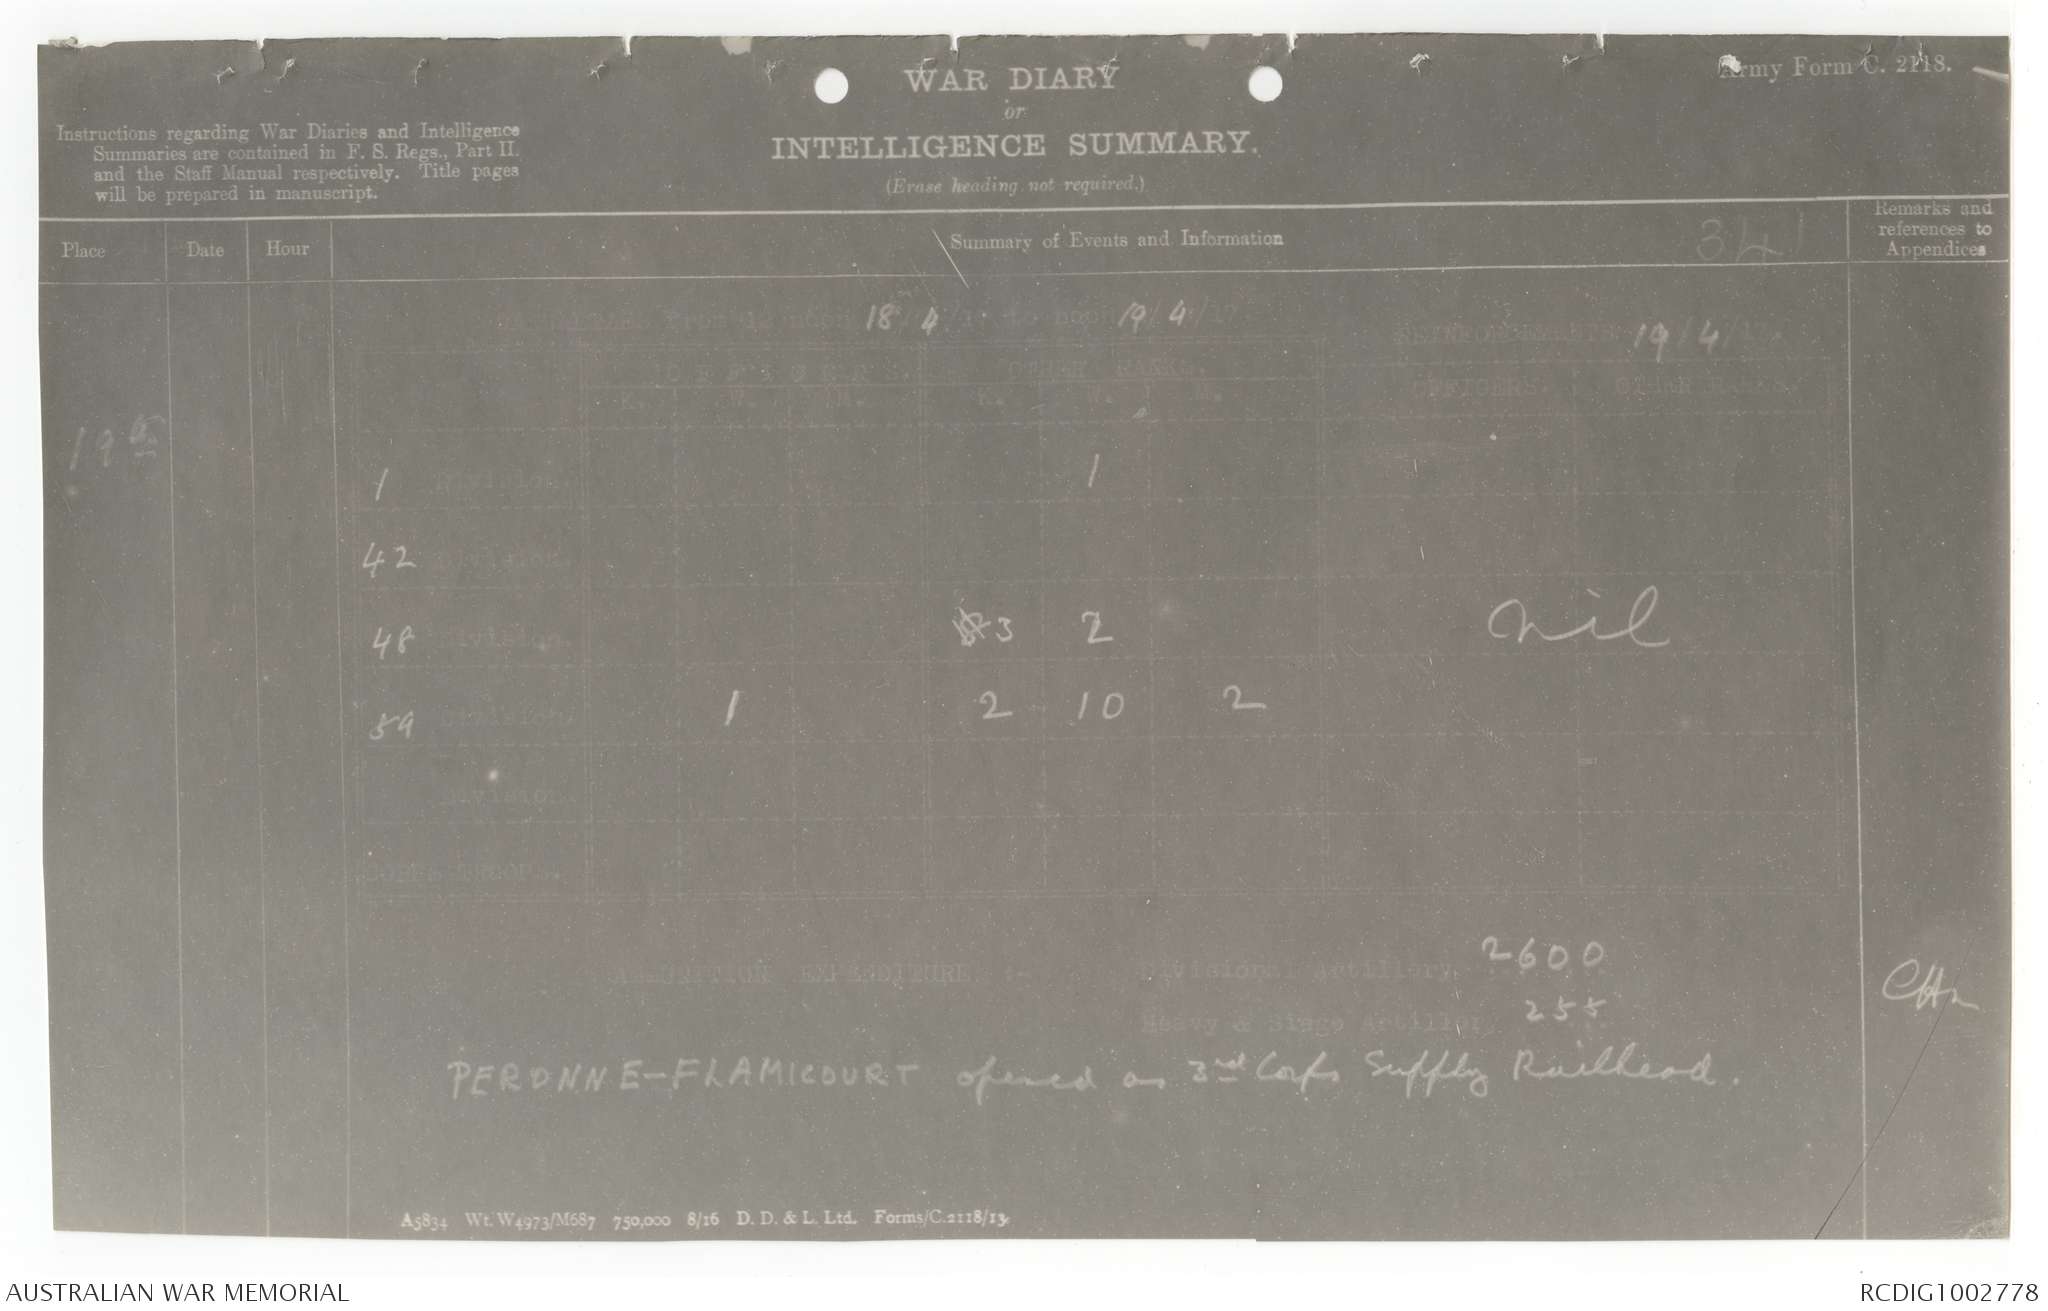 Army Form C. 2118.
WAR DIARY
or
INTELLIGENCE SUMMARY.
(Erase heading not required.)
Instructions regarding War Diaries and Intelligence
Summaries are contained in F. S. Regs., Part II.
and the Staff Manual respectively. Title pages
will be prepared in manuscript.
Place Date Hour Summary of Events and Information Remarks and references to Appendices
341
from 12 noon 18/4/17 to noon 19/4/17
REINFORCEMENTS 19/4/17.
OFFICERS. OTHER RANKS. OFFICERS. OTHER RANKS.
K. W. M. K. W. M.
19th
1 Division. 1
42 Division.
48 Division. 3 2 nil
59 Division. 1 2 10 2
Division.
CORPS TROOPS.
AMMUNITION EXPENDITURE :- Divisional Artillery 2600
Heavy & Siege Artillery 255
PERONNE-FLAMICOURT opened as 3rd Corps Supply Railhead.
A5834 Wt. W4973/M687 750,000 8/16 D. D. & L. Ltd. Forms/C.2118/13.
AUSTRALIAN WAR MEMORIAL
RCDIG1002778